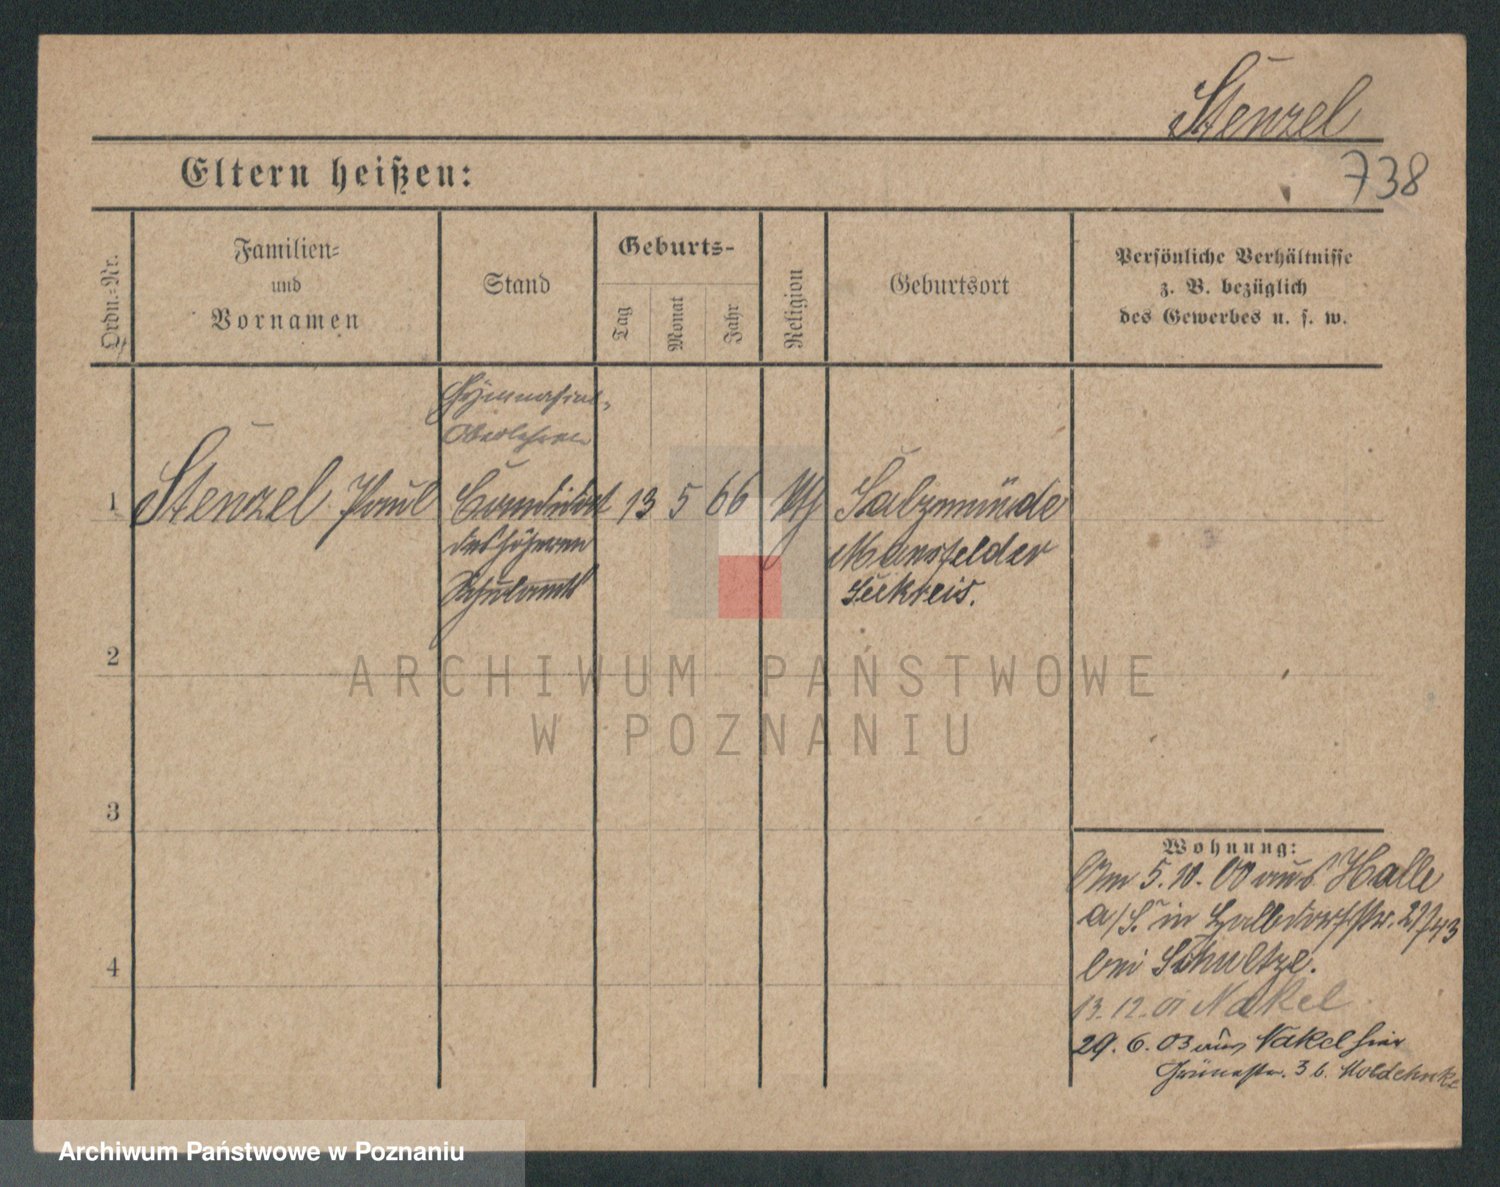 Stenzel
738
Eltern heißen:
Ordn.-Nr.
Familien-
und
Vornamen
Stand
Geburts-
Tag
Monat
Jahr
Religion
Geburtsort
Persönliche Verhältnisse
z. B. bezüglich
des Gewerbes u. s. w.
Gymnasial-
Oberlehrer
1 Stenzel Paul Candidat 13 5 66 Salzmünde
des höheren Mansfelder
Schulamts Seekreis.
2
3
4
Wohnung:
Am 5.10.00 aus Halle
a/S. in Halbdorfstr.
bei Schultze.
13.12.01 Nakel
29.6.03 aus Nakel hier
3 b. Moldehnke
ARCHIWUM PAŃSTWOWE
W POZNANIU
Archiwum Państwowe w Poznaniu